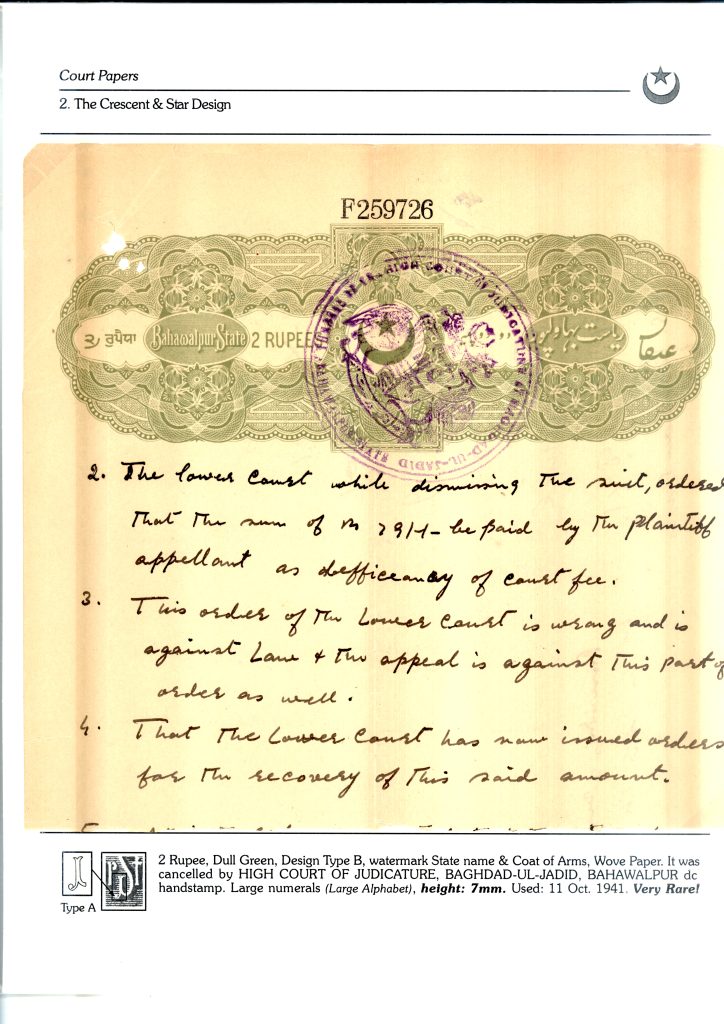 Court Papers
2. The Crescent & Star Design
F259726
२ ਰੁਪੈਯਾ Bahawalpur State 2 RUPEE
HIGH COURT OF JUDICATURE BAGHDAD-UL-JADID
2. The lower Court while dismissing the suit, ordered
that the sum of Rs 291/- be paid by the plaintiff
appellant as defficeancy of court fee.
3. This order of the Lower Court is wrong and is
against Law & the appeal is against this part of
order as well.
4. That the Lower Court has now issued orders
for the recovery of this said amount.
Type A
2 Rupee, Dull Green, Design Type B, watermark State name & Coat of Arms, Wove Paper. It was
cancelled by HIGH COURT OF JUDICATURE, BAGHDAD-UL-JADID, BAHAWALPUR dc
handstamp. Large numerals (Large Alphabet), height: 7mm. Used: 11 Oct. 1941. Very Rare!